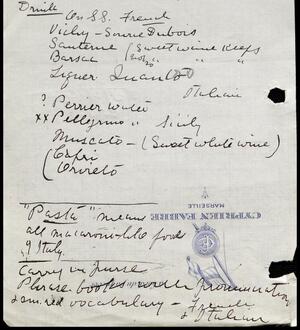 Drink
On S.S. French
Vichy - Dubois
Sauterne (Sweet wine keeps
Barsac " "
Liquer
Italian
? Perrier water
xx Pellegrino " Sicily
Muscato - (Sweet white wine)
(Capri
(Orvieto
CYPRIEN FABRE
MARSEILLE
"Pasta" means
all macaroni like food
of Italy.
Carry in purse
Phrase books under pronunciation
and red vocabulary - French
& Italian